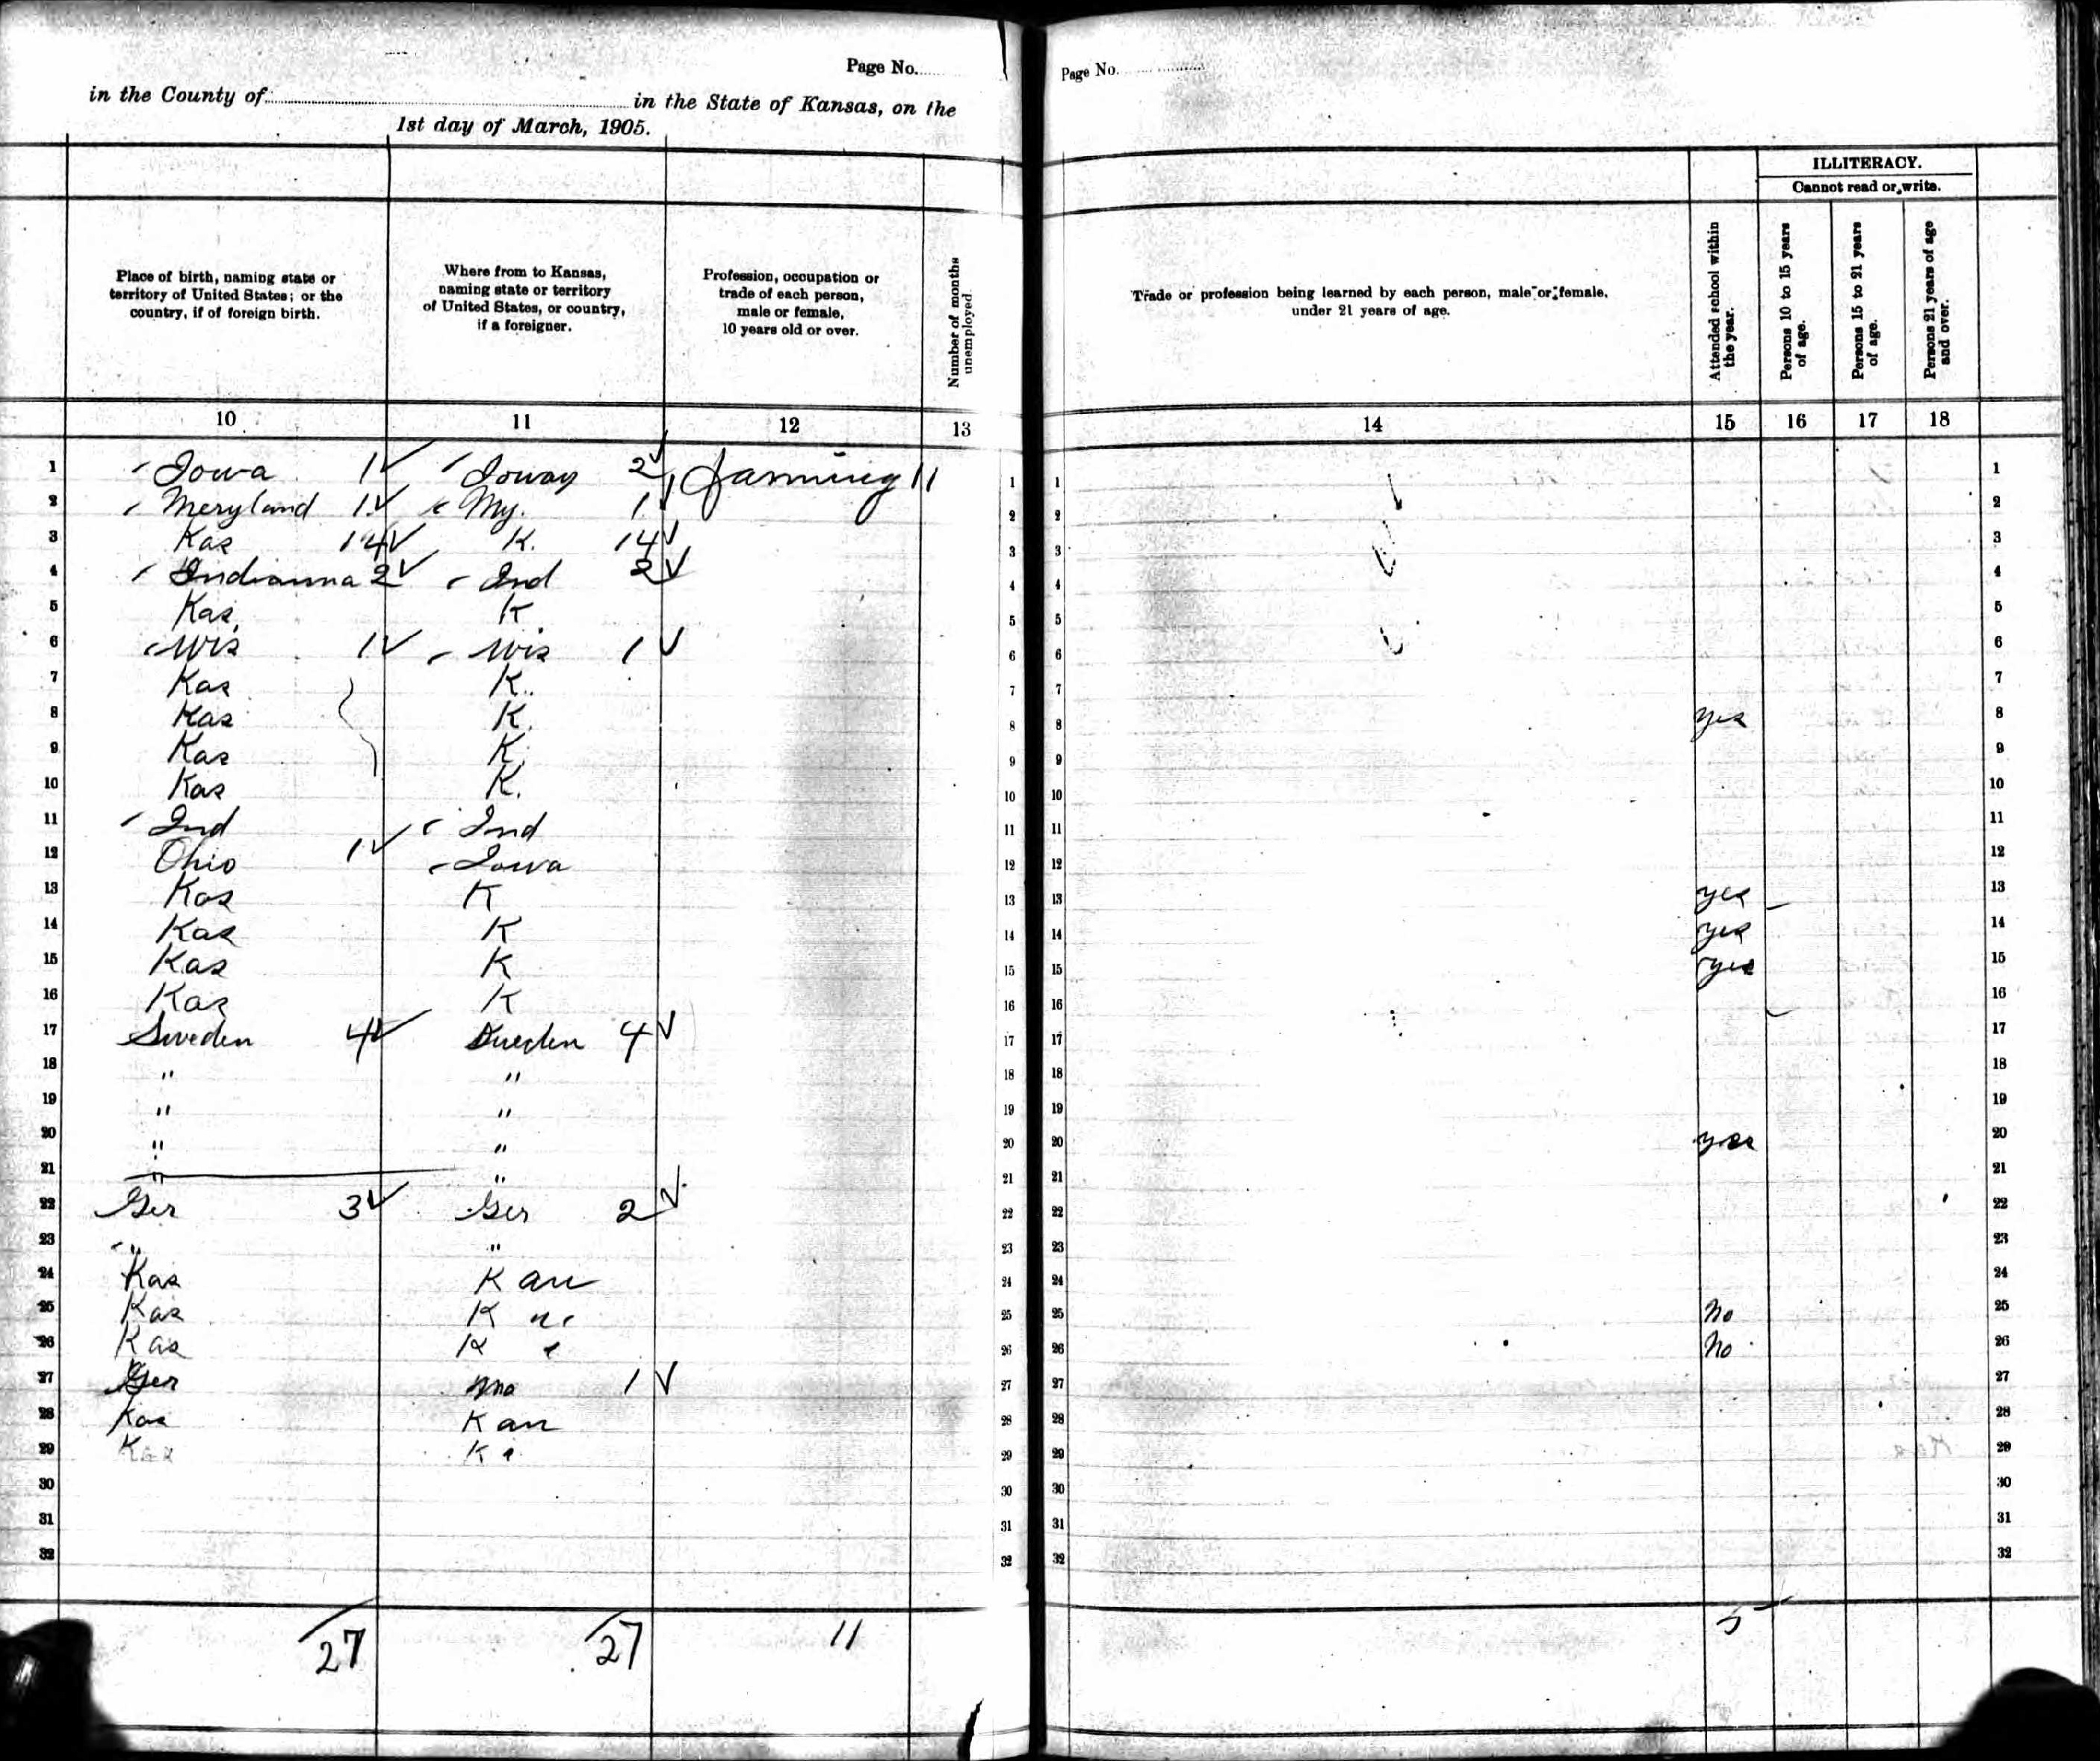 Page No.
in the County of in the State of Kansas, on the
1st day of March, 1905.
Place of birth, naming state or territory of United States; or the country, if of foreign birth.
Where from to Kansas, naming state or territory of United States, or country, if a foreigner.
Profession, occupation or trade of each person, male or female, 10 years old or over.
Number of months unemployed
10 11 12 13
1 Iowa 1✓ Ioway 2✓ farming 11 1
2 Meryland 1✓ My. 1✓ 2
3 Kas 14✓ K. 14✓ 3
4 Indianna 2✓ Ind 2✓ 4
5 Kas, K 5
6 Wis 1✓ Wis 1✓ 6
7 Kas K. 7
8 Kas K. 8
9 Kas K. 9
10 Kas K. 10
11 Ind Ind 11
12 Ohio 1✓ Iowa 12
13 Kas K 13
14 Kas K 14
15 Kas K 15
16 Kas K 16
17 Sweden 4✓ Sweden 4✓ 17
18 " " 18
19 " " 19
20 " " 20
21 " " 21
22 Ger 3✓ Ger 2✓ 22
23 " " 23
24 Kas Kan 24
25 Kas K 25
26 Kas K 26
27 Ger Mo 1✓ 27
28 Kas Kan 28
29 Kas K 29
30 30
31 31
32 32
27 27 11
Page No.
ILLITERACY.
Cannot read or write.
Trade or profession being learned by each person, male or female, under 21 years of age.
Attended school within the year.
Persons 10 to 15 years of age.
Persons 15 to 21 years of age.
Persons 21 years of age and over.
14 15 16 17 18
1 1
2 2
3 3
4 4
5 5
6 6
7 7
8 yes 8
9 9
10 10
11 11
12 12
13 yes 13
14 yes 14
15 yes 15
16 16
17 17
18 18
19 19
20 yes 20
21 21
22 22
23 23
24 24
25 No 25
26 No 26
27 27
28 28
29 29
30 30
31 31
32 32
5